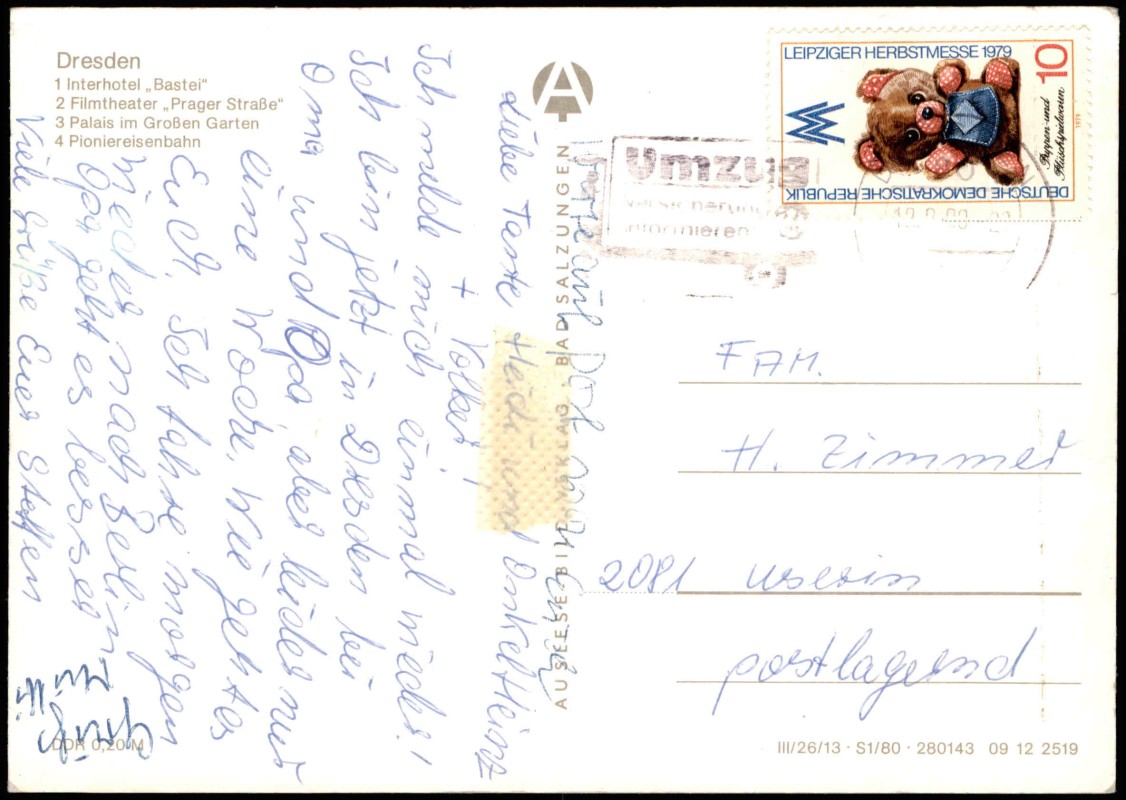 Dresden
1 Interhotel „Bastei“
2 Filmtheater „Prager Straße“
3 Palais im Großen Garten
4 Pioniereisenbahn
Liebe Tante Heidi und Onkel Heinz
+ Volker!
Ich melde mich einmal wieder!
Ich bin jetzt in Dresden bei
Oma und Opa, aber leider nur
eine Woche. Wie geht es
Euch. Ich fahre morgen
wieder nach Berlin.
Opa geht es besser
Viele Grüße Euer Steffen
Gruß
Mutti
DDR 0,20 M
A
AUSLESE-BILD-VERLAG · BAD SALZUNGEN
LEIPZIGER HERBSTMESSE 1979
10
Puppen- und
Plüschspielwaren
1979
DEUTSCHE DEMOKRATISCHE REPUBLIK
Umzug
Versicherung
informieren
FAM.
H. Zimmer
2081 Userin
postlagernd
III/26/13 · S1/80 · 280143 09 12 2519